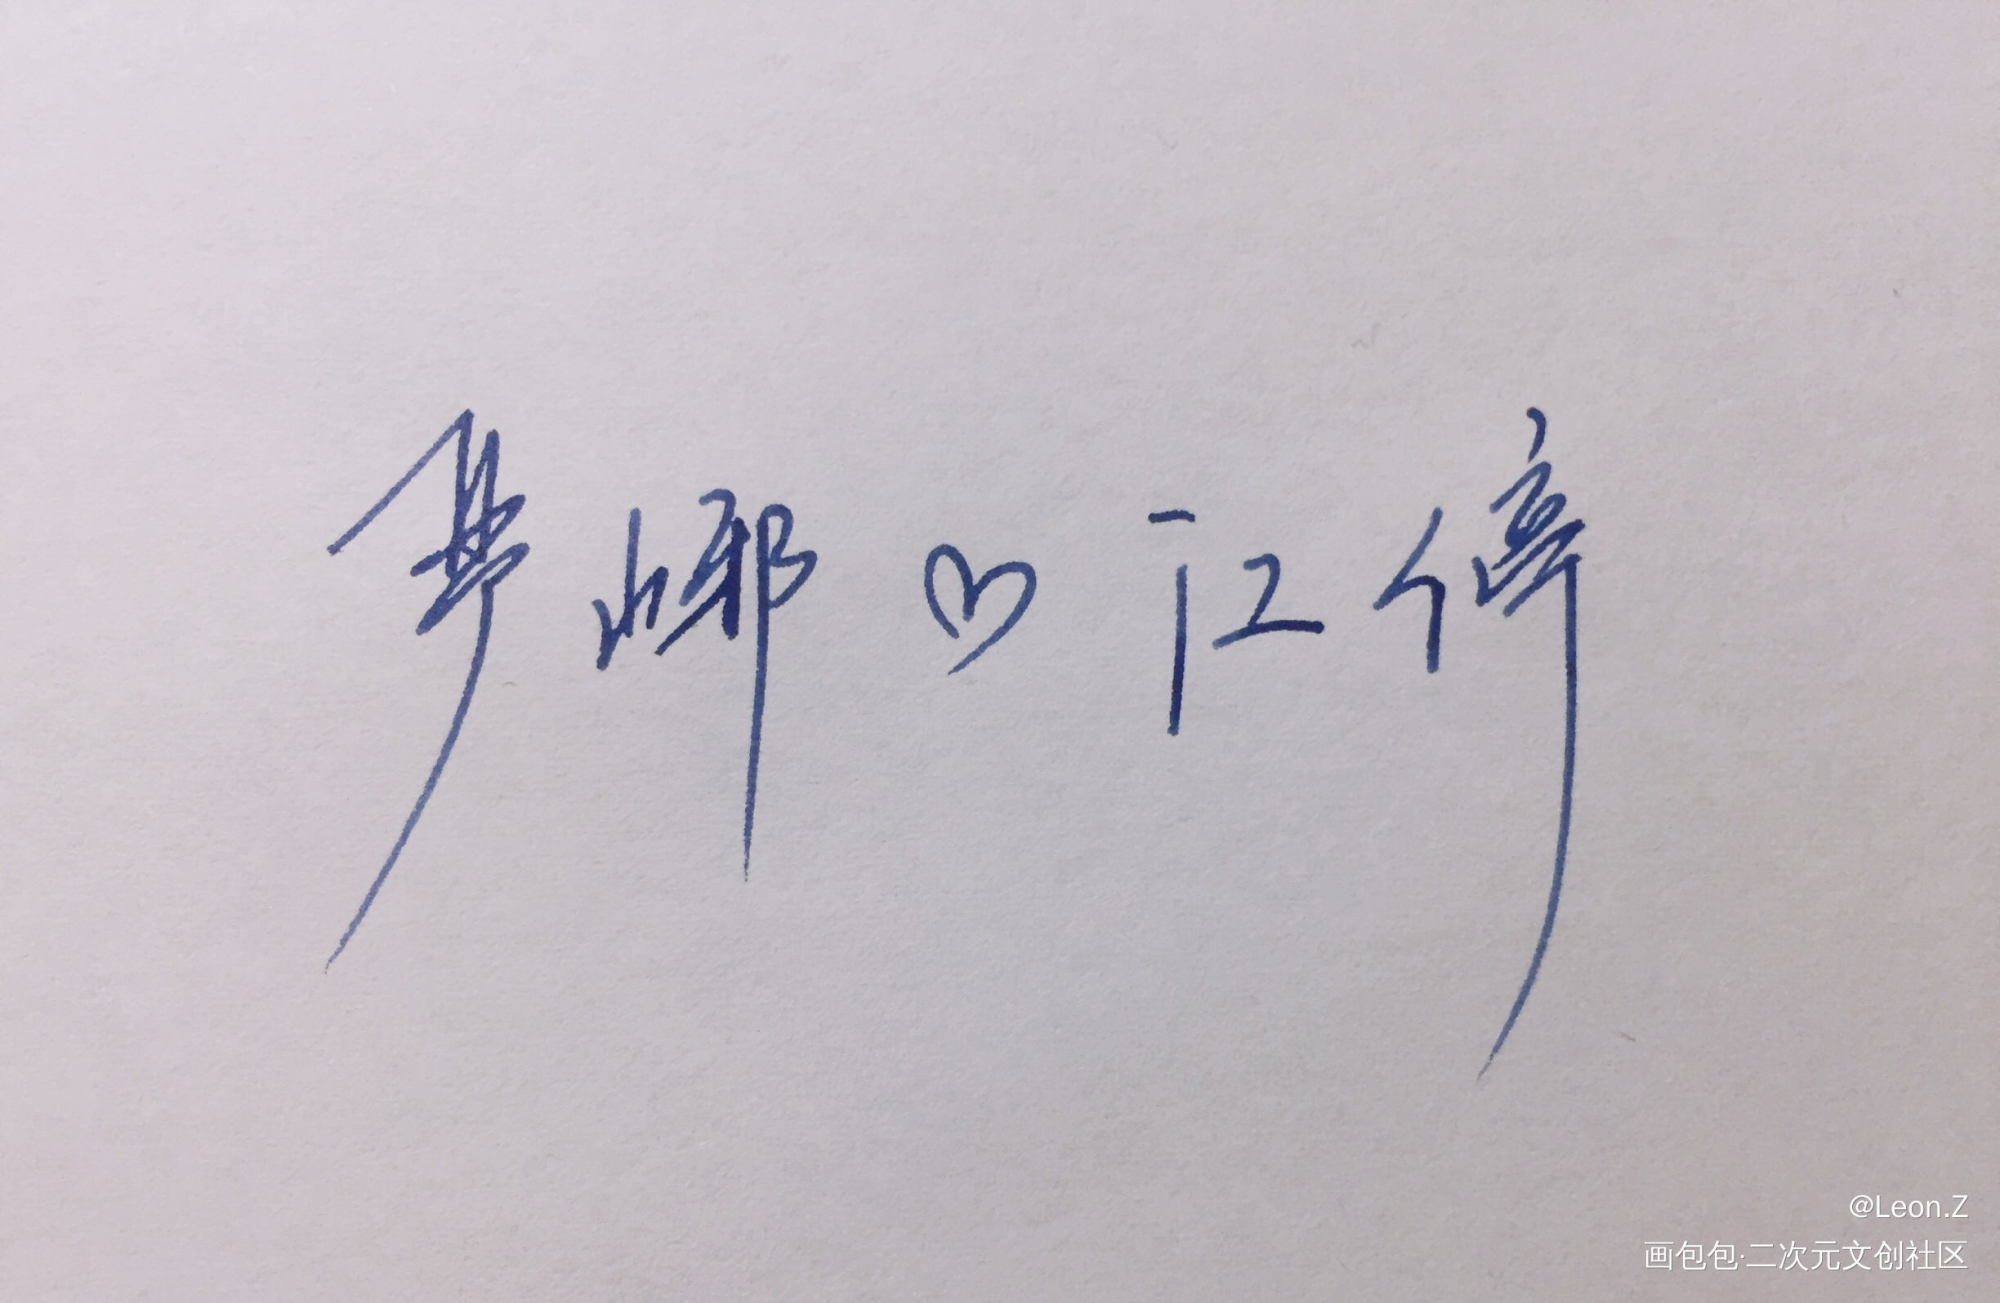 ♡江倚
@Leon.Z
画包包·二次元文创社区